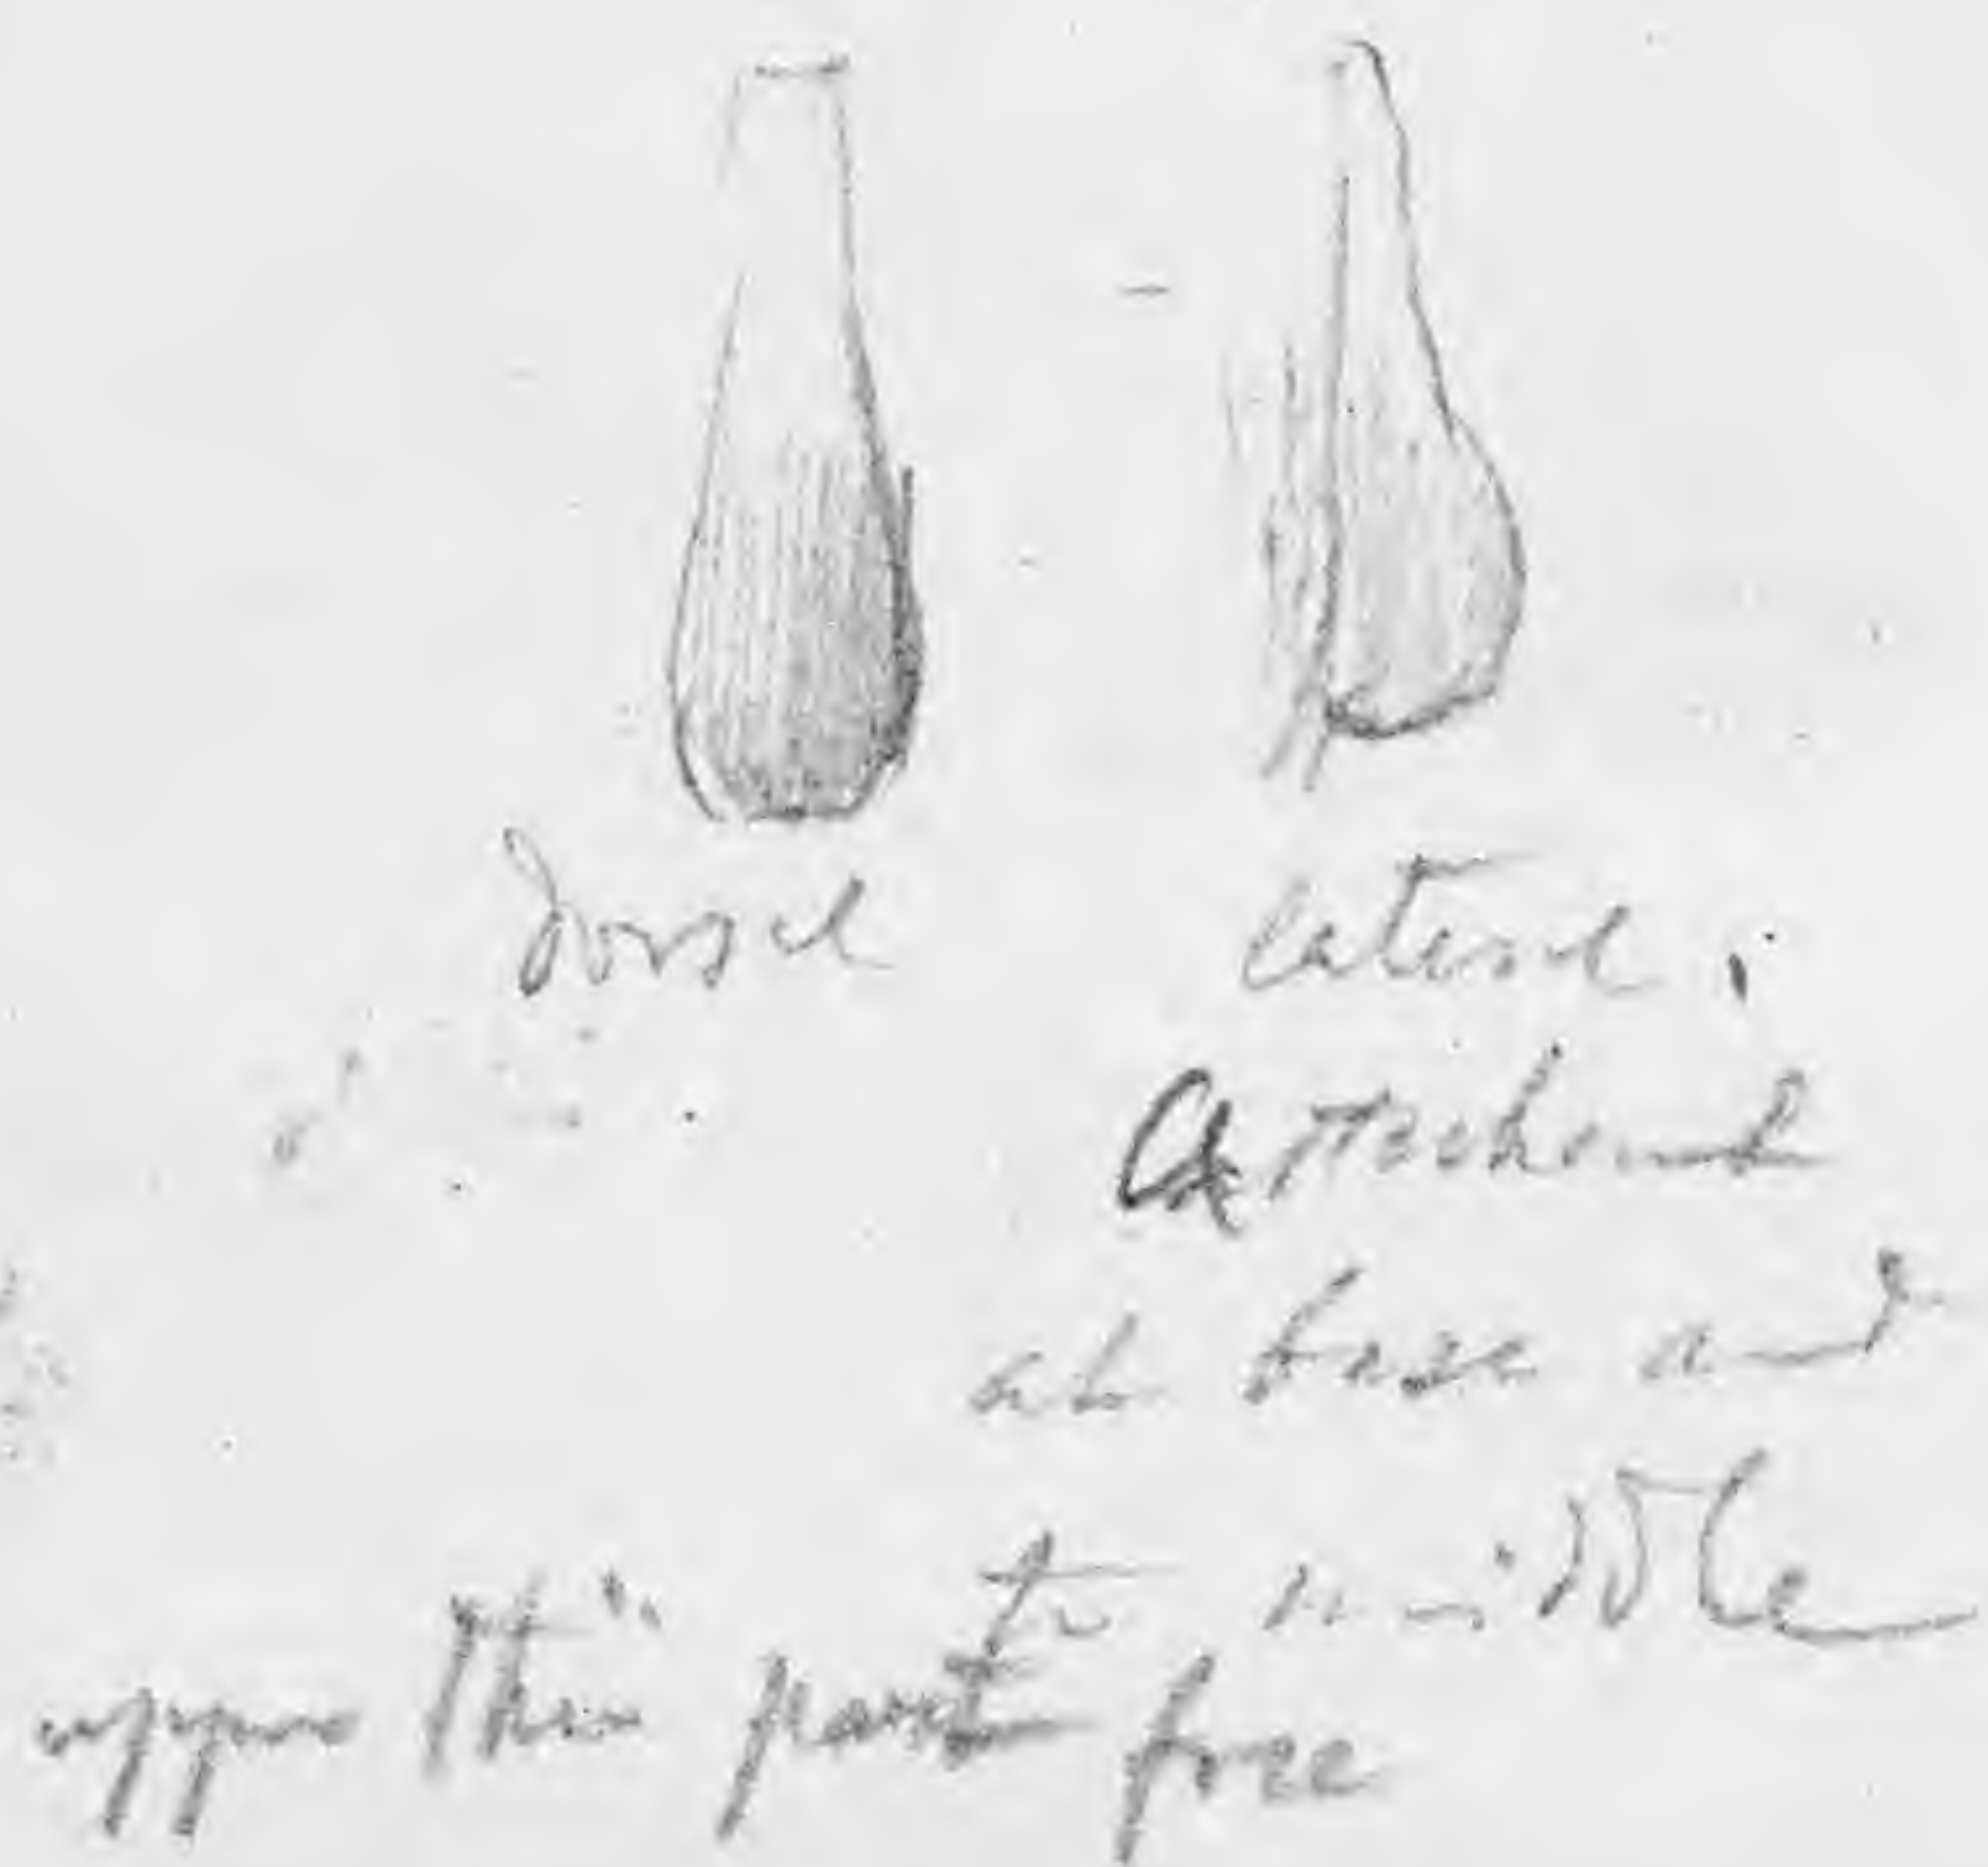 Dorsal
lateral.
Attachment
at base and
to middle
upper thin part free